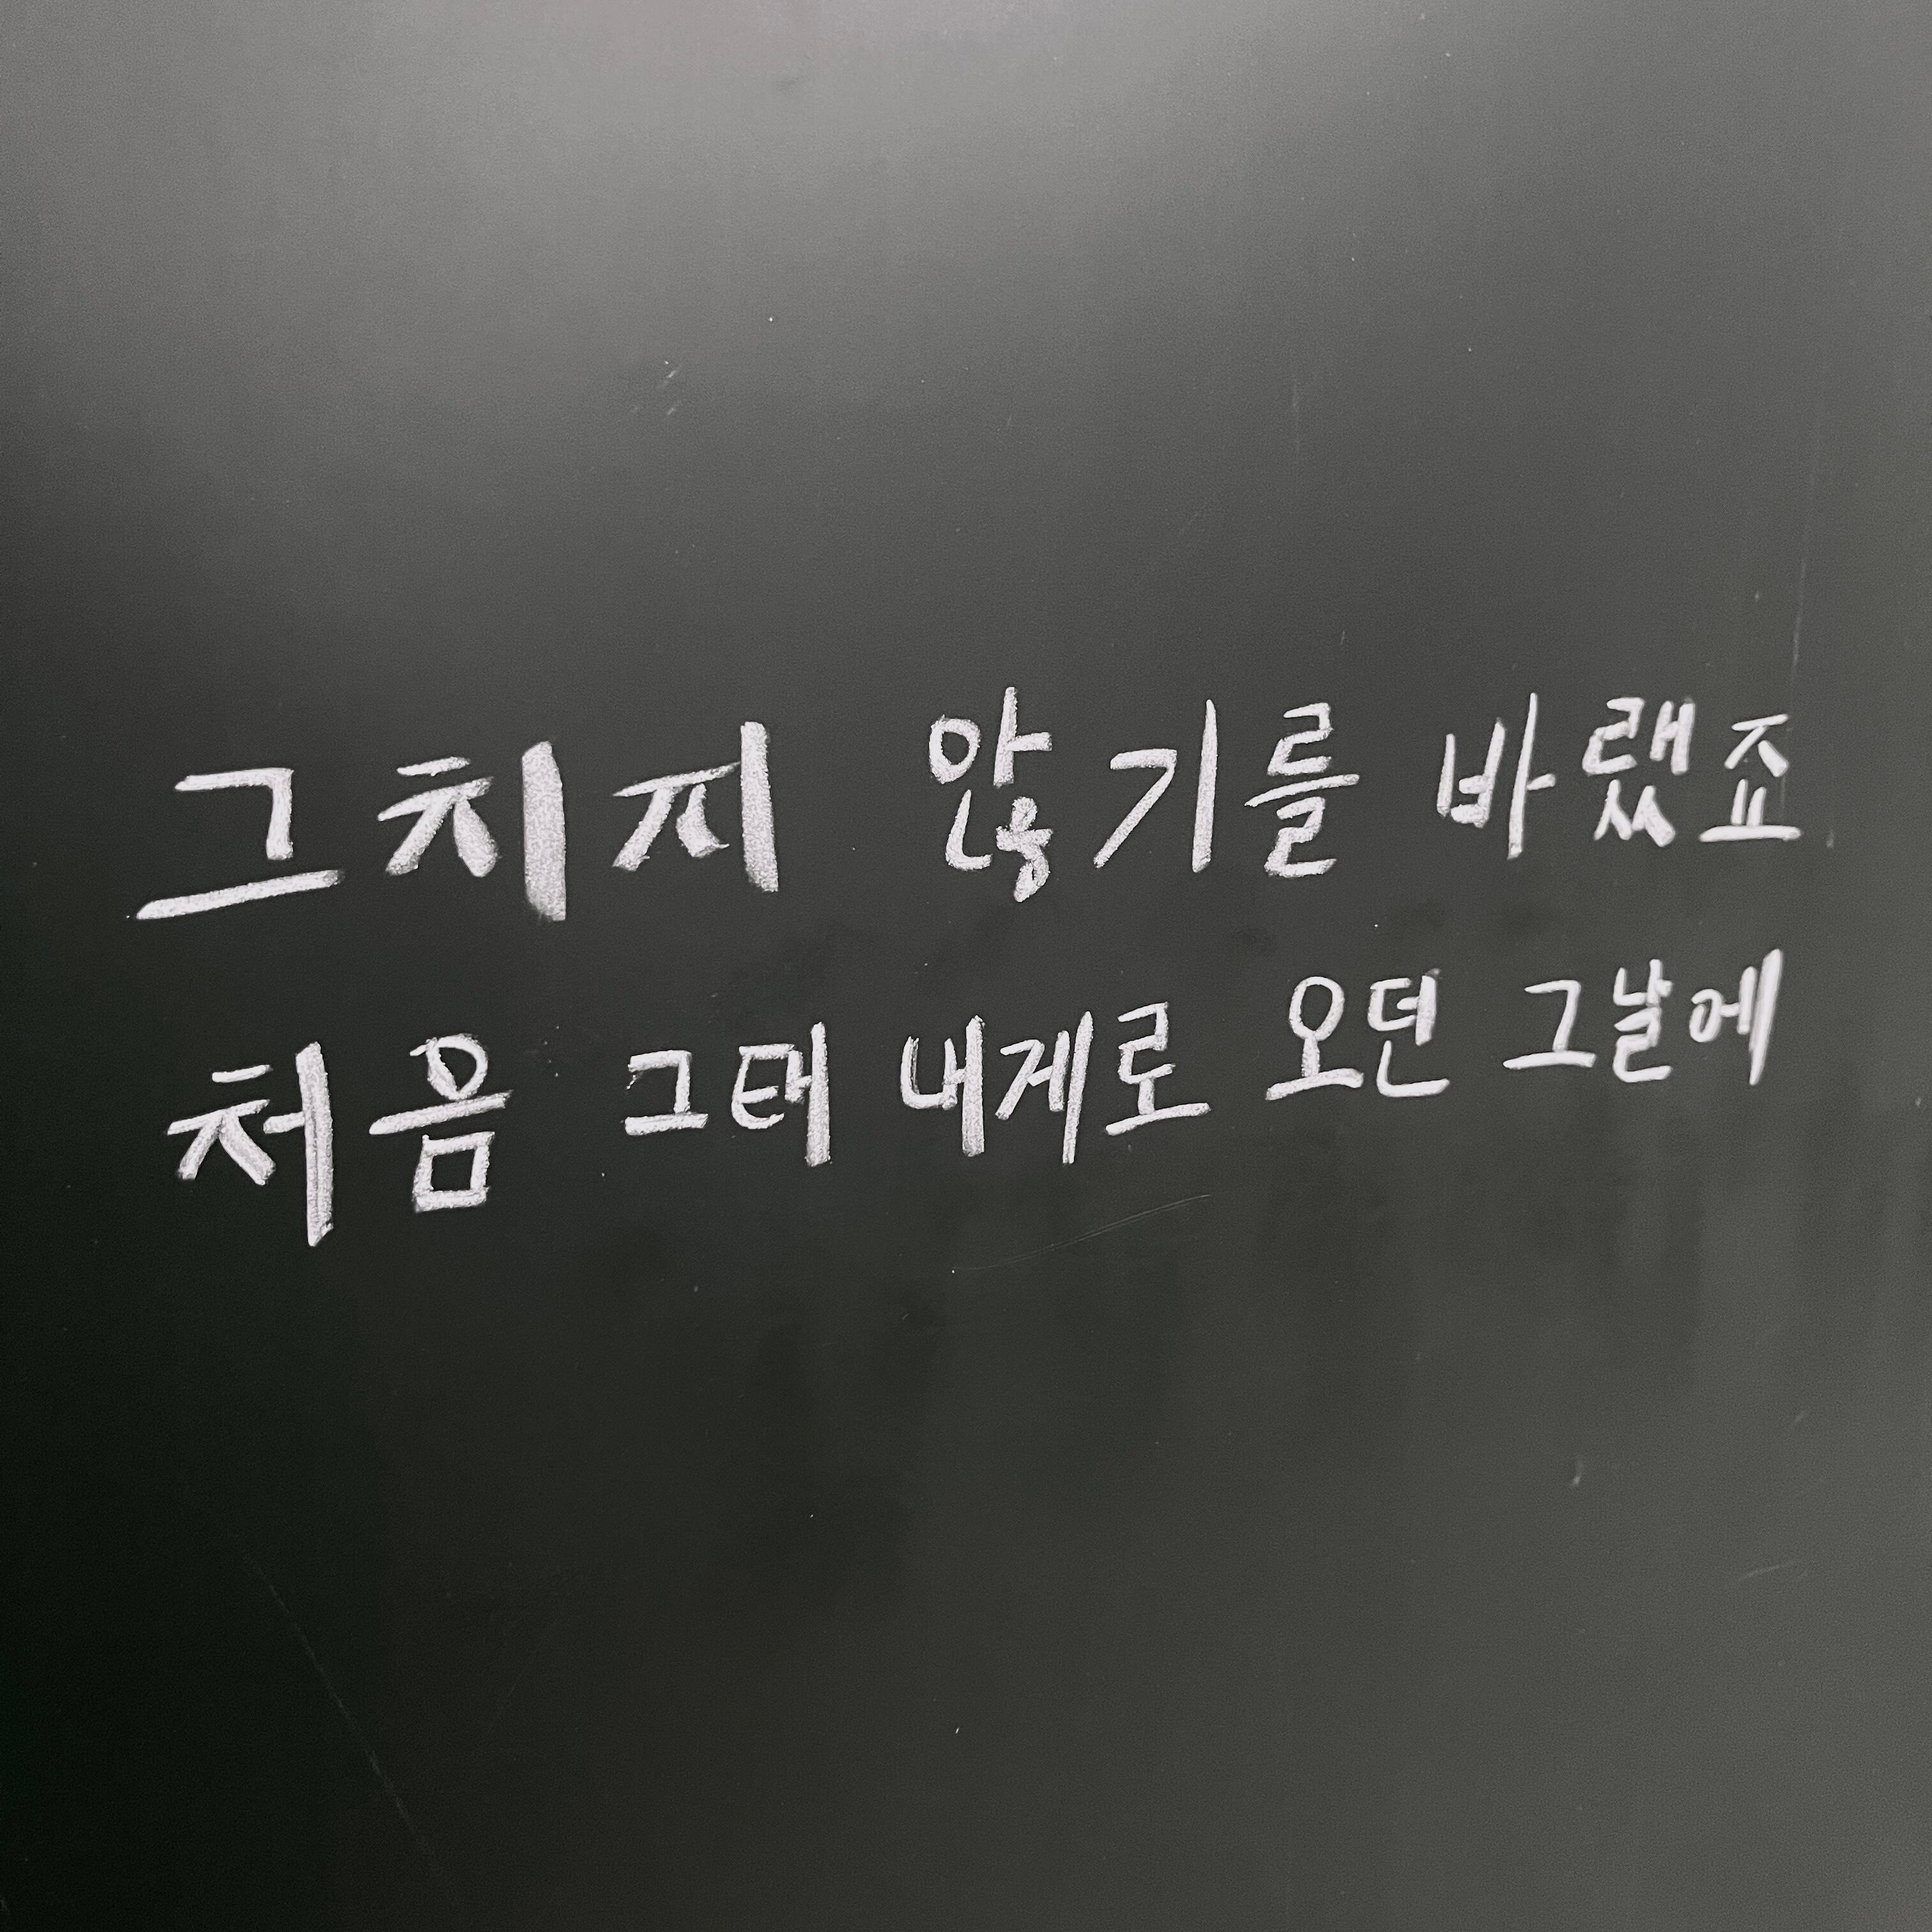 그치지 않기를 바랬죠
처음 그대 내게로 오던 그날에